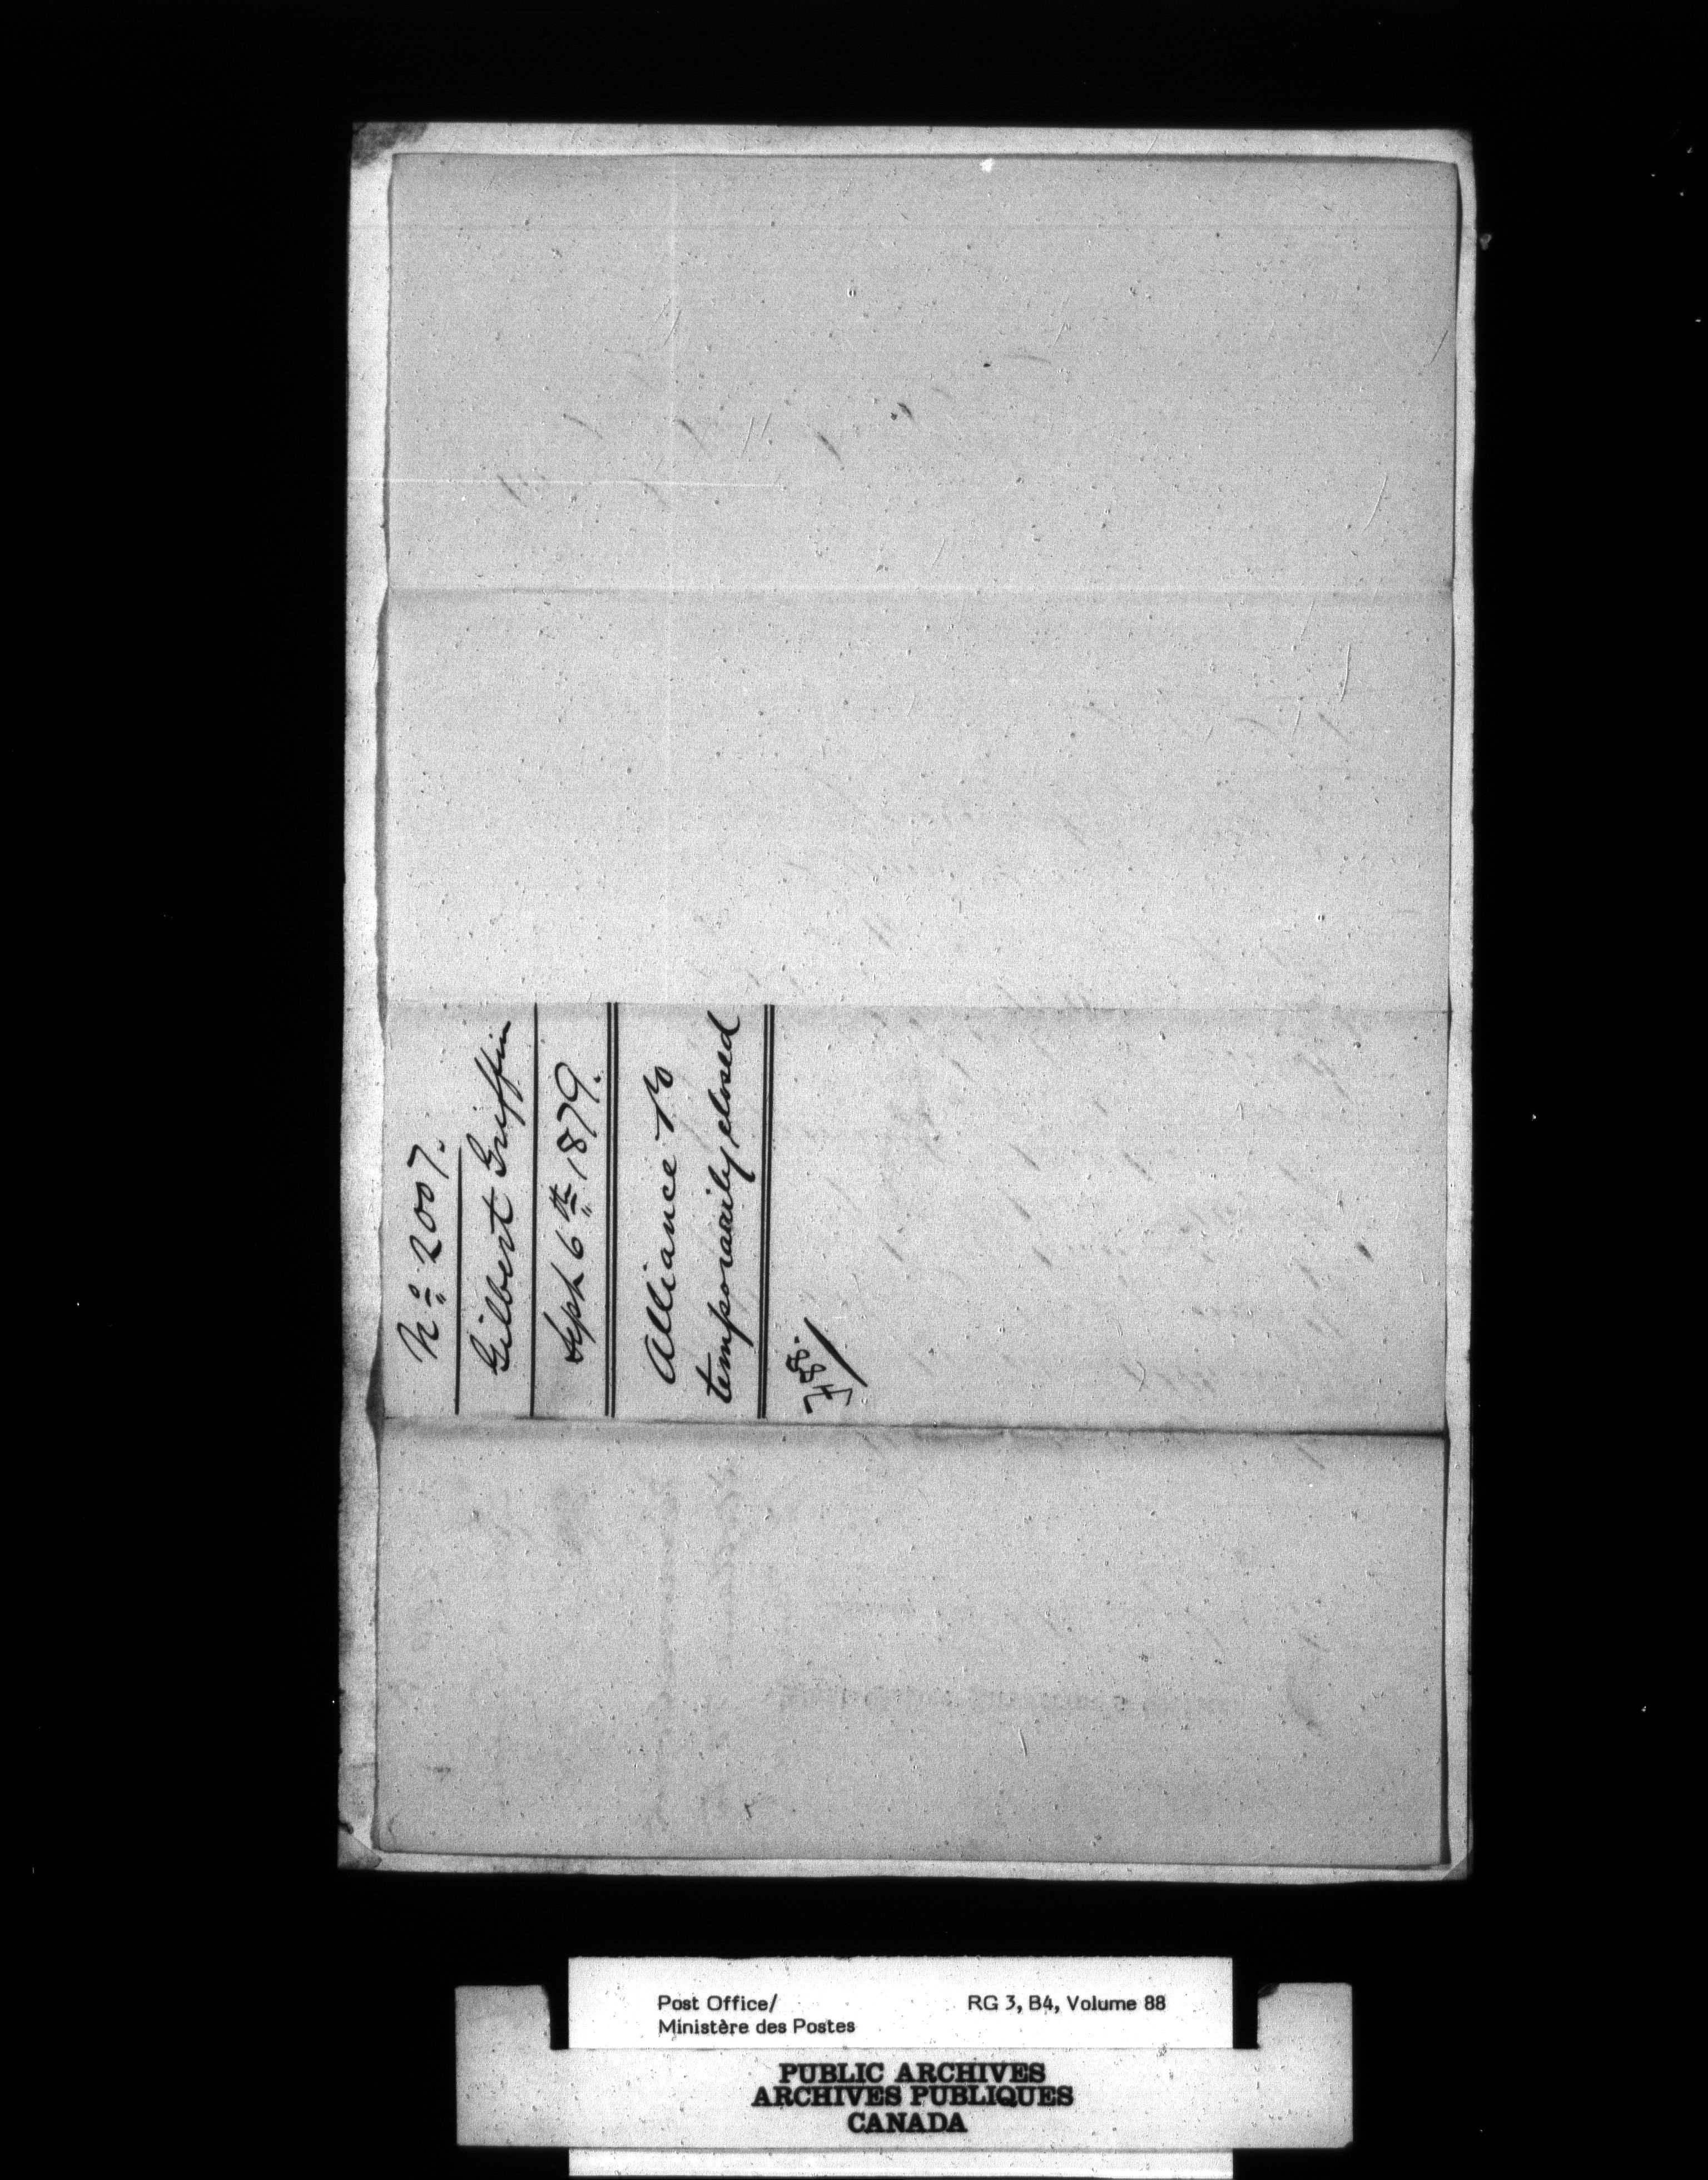 No 2007.
Gilbert Griffin
Sept 6th 1879.
Alliance P.O
temporarily closed
Post Office/
Ministère des Postes
RG 3, B4, Volume 88
PUBLIC ARCHIVES
ARCHIVES PUBLIQUES
CANADA